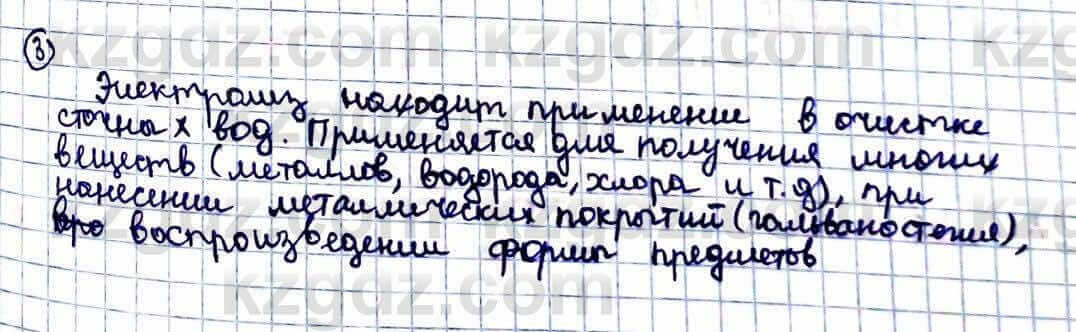 3
Электролиз находит применение в очистке
сточных вод. Применяется для получения многих
веществ (металлов, водорода, хлора и т.д), при
нанесении металлических покрытий (гальваностегия),
воспроизведении форм предметов
kzgdz.com kzgdz.com kzgdz.com